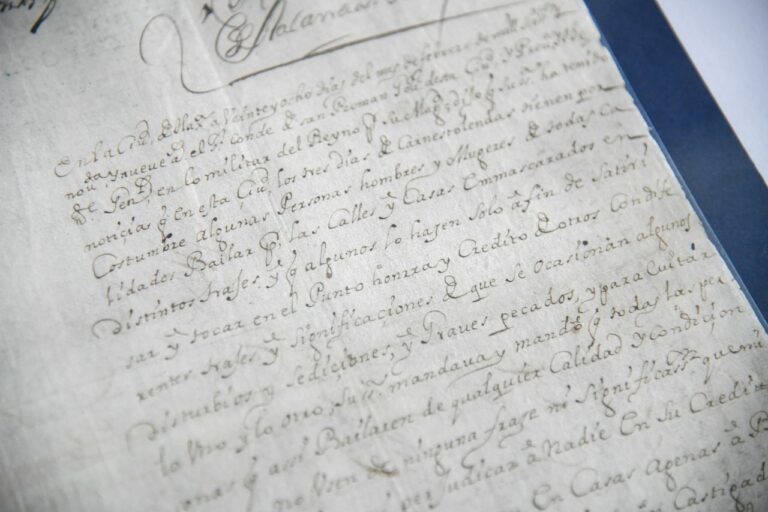 En la Ciud. de a Veinte y ocho días del mes de febrero de mill
nou.ta y nueve a. el Sr. Conde de san Roman Gou. desta Ciud. y
de Gen.l en lo militar del Reyno Su Mag.d dijo q Su ss.a ha tenido
noticia q en esta Ciud. los tres dias de Carnestolendas tienen por
Costumbre algunas Personas hombres y Mugeres de todas Ca
lidades Bailar p.r las Calles y Casas Enmascarados en
distintos trajes y q algunos lo hasen solo a fin de Satiri
sar y tocar en el Punto honrra y Credito de otros Con dife
rentes trajes y significaciones de que se ocasionan algunos
Disturbios y sediciones, y Graves pecados, y para evitar
lo Uno y lo otro, Su ss.a mandava y mandó q todas las per
onas q assi Bailaren de qualquier Calidad y Condicion
no Usen de ninguna frase ni significass.n que mi
perjudicar a Nadie En su Credit
En Casas Agenas a
Castigad